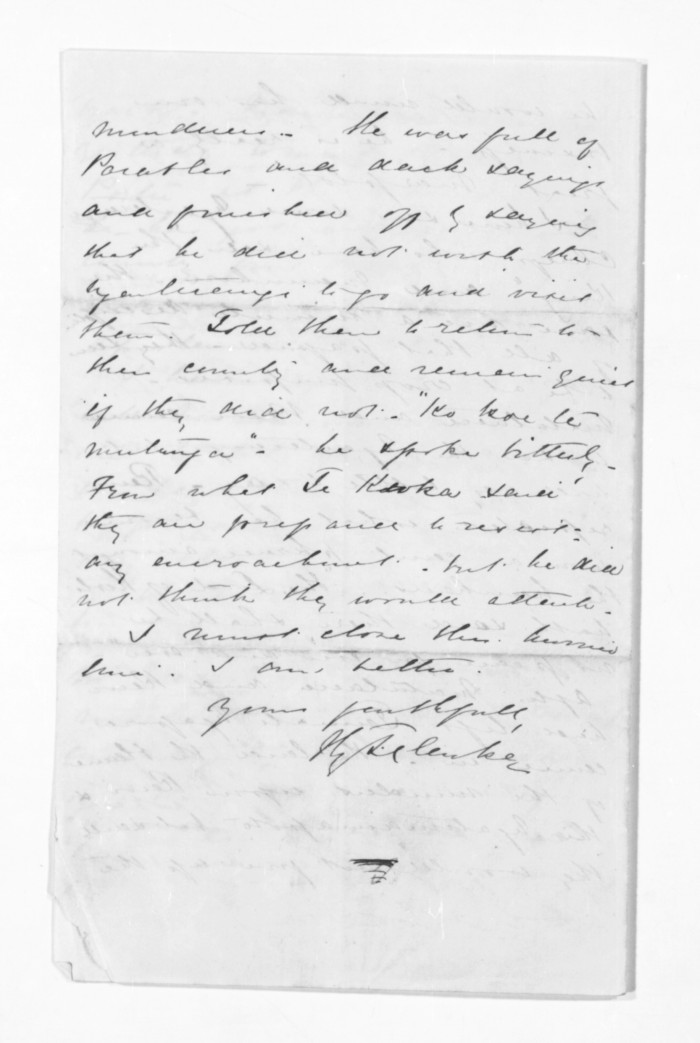 murderers - He was full of
Parables and dark sayings
and finished off by saying
that he did not wish the
to go and visit
them. Told them to return to
their country and remain quiet
if they did not - "Ko koe te
" - he spoke bitterly -
From what Te said
they are prepared to resist -
any encroachment - but he did
not think they would attack -
I must close this hurried
line. I am better.
Yours faithfully
Hy